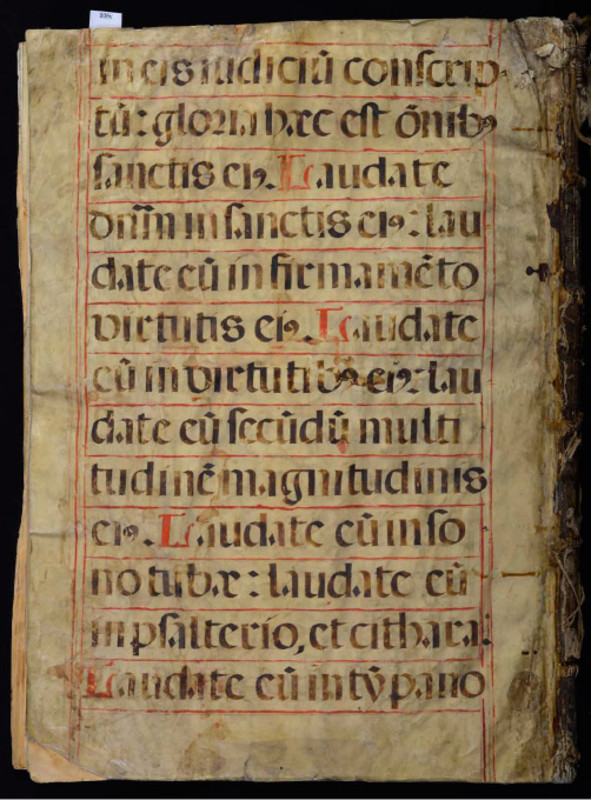 in eis iudiciū conscrip
tū: gloria hæc est ōnibꝰ
sanctis eiꝰ. Laudate
dnm̄ in sanctis eiꝰ: lau
date eū in firmamēto
virtutis eiꝰ. Laudate
eū in virtutibꝰ eiꝰ: lau
date eū secūdū multi
tudinē magnitudinis
eiꝰ. Laudate eū in so
no tubæ: laudate eū
in psalterio, et cithara.
Laudate eū in tȳpano